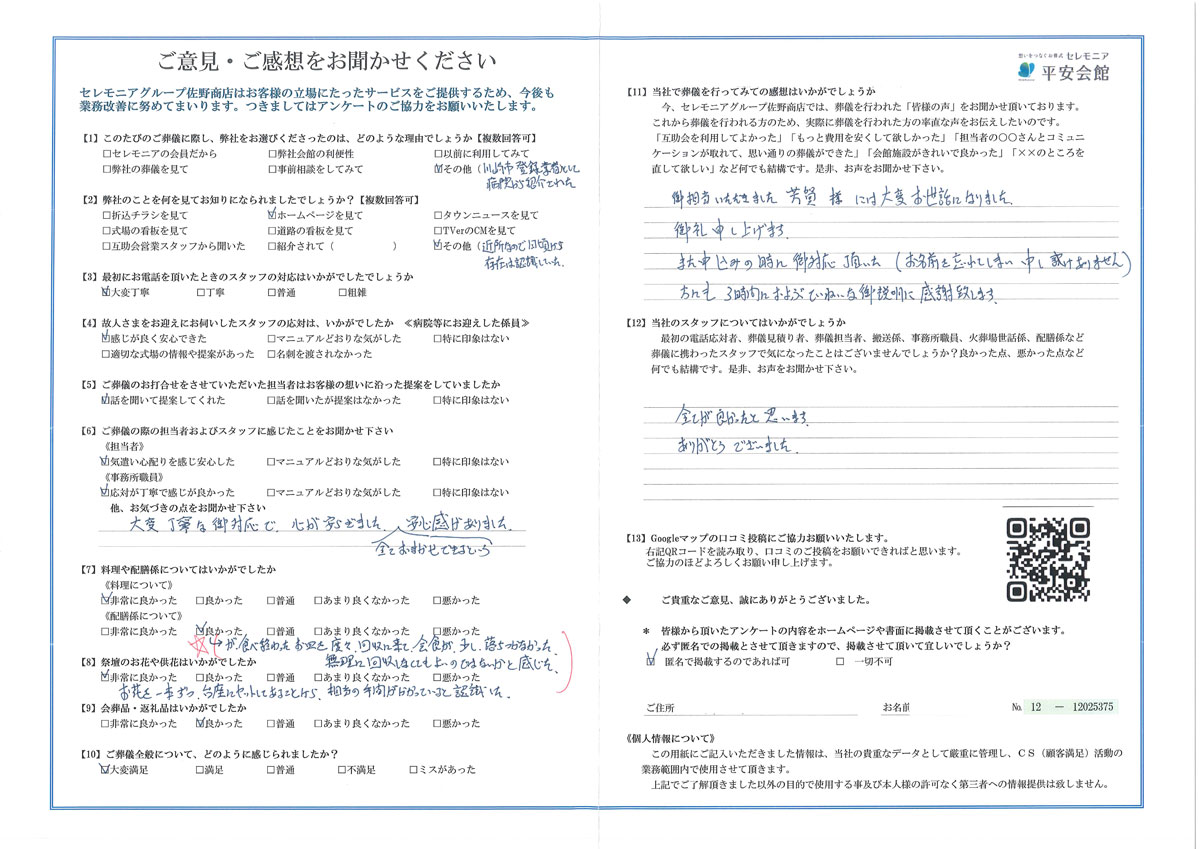 ご意見・ご感想をお聞かせください
セレモニアグループ佐野商店はお客様の立場にたったサービスをご提供するため、今後も
業務改善に努めてまいります。つきましてはアンケートのご協力をお願いいたします。
【1】このたびのご葬儀に際し、弊社をお選びくださったのは、どのような理由でしょうか【複数回答可】
☐セレモニアの会員だから ☐弊社会館の利便性 ☐以前に利用してみて
☐弊社の葬儀を見て ☐事前相談をしてみて ☑その他（川崎市登録業者として
病院から紹介された
【2】弊社のことを何を見てお知りになられましたでしょうか？【複数回答可】
☐折込チラシを見て ☑ホームページを見て ☐タウンニュースを見て
☐式場の看板を見て ☐道路の看板を見て ☐TVerのCMを見て
☐互助会営業スタッフから聞いた ☐紹介されて（ ） ☑その他（近所なので日頃から
存在は認識していた。
【3】最初にお電話を頂いたときのスタッフの対応はいかがでしたでしょうか
☑大変丁寧 ☐丁寧 ☐普通 ☐粗雑
【4】故人さまをお迎えにお伺いしたスタッフの応対は、いかがでしたか ≪病院等にお迎えした係員≫
☑感じが良く安心できた ☐マニュアルどおりな気がした ☐特に印象はない
☐適切な式場の情報や提案があった ☐名刺を渡されなかった
【5】ご葬儀のお打合せをさせていただいた担当者はお客様の想いに沿った提案をしていましたか
☑話を聞いて提案してくれた ☐話を聞いたが提案はなかった ☐特に印象はない
【6】ご葬儀の際の担当者およびスタッフに感じたことをお聞かせ下さい
《担当者》
☑気遣い心配りを感じ安心した ☐マニュアルどおりな気がした ☐特に印象はない
《事務所職員》
☑応対が丁寧で感じが良かった ☐マニュアルどおりな気がした ☐特に印象はない
他、お気づきの点をお聞かせ下さい
大変丁寧な御対応で、心が安らぎました。安心感がありました。
全ておまかせできるという
【7】料理や配膳係についてはいかがでしたか
《料理について》
☑非常に良かった ☐良かった ☐普通 ☐あまり良くなかった ☐悪かった
《配膳係について》
☐非常に良かった ☑良かった ☐普通 ☐あまり良くなかった ☐悪かった
が食べ終わったお皿を度々、回収に来て会食が少し落ちつかなかった。
無理に回収しなくてもよいのではないかと感じた。
【8】祭壇のお花や供花はいかがでしたか
☑非常に良かった ☐良かった ☐普通 ☐あまり良くなかった ☐悪かった
お花を一本ずつ、台座にセットしてあることから、相当の手間がかかっていると認識した。
【9】会葬品・返礼品はいかがでしたか
☐非常に良かった ☑良かった ☐普通 ☐あまり良くなかった ☐悪かった
【10】ご葬儀全般について、どのように感じられましたか？
☑大変満足 ☐満足 ☐普通 ☐不満足 ☐ミスがあった
想いをつなぐお葬式 セレモニア
平安会館
【11】当社で葬儀を行ってみての感想はいかがでしょうか
今、セレモニアグループ佐野商店では、葬儀を行われた「皆様の声」をお聞かせ頂いております。
これから葬儀を行われる方のため、実際に葬儀を行われた方の率直な声をお伝えしたいのです。
「互助会を利用してよかった」「もっと費用を安くして欲しかった」「担当者の〇〇さんとコミュニ
ケーションが取れて、思い通りの葬儀ができた」「会館施設がきれいで良かった」「××のところを
直して欲しい」など何でも結構です。是非、お声をお聞かせ下さい。
御担当いただきました 芳賀 様 には大変お世話になりました。
御礼申し上げます。
また申込みの時に御対応頂いた（お名前を忘れてしまい申し訳ありません）
方にも3時間におよぶていねいな御説明に感謝致します。
【12】当社のスタッフについてはいかがでしょうか
最初の電話応対者、葬儀見積り者、葬儀担当者、搬送係、事務所職員、火葬場世話係、配膳係など
葬儀に携わったスタッフで気になったことはございませんでしょうか？良かった点、悪かった点など
何でも結構です。是非、お声をお聞かせ下さい。
全てが良かったと思います。
ありがとうございました。
【13】Googleマップの口コミ投稿にご協力お願いいたします。
右記QRコードを読み取り、口コミのご投稿をお願いできればと思います。
ご協力のほどよろしくお願い申し上げます。
◆ ご貴重なご意見、誠にありがとうございました。
＊ 皆様から頂いたアンケートの内容をホームページや書面に掲載させて頂くことがございます。
必ず匿名での掲載とさせて頂きますので、掲載させて頂いて宜しいでしょうか？
☑ 匿名で掲載するのであれば可 ☐ 一切不可
ご住所 お名前 No. 12 － 12025375
《個人情報について》
この用紙にご記入いただきました情報は、当社の貴重なデータとして厳重に管理し、ＣＳ（顧客満足）活動の
業務範囲内で使用させて頂きます。
上記でご了解頂きました以外の目的で使用する事及び本人様の許可なく第三者への情報提供は致しません。